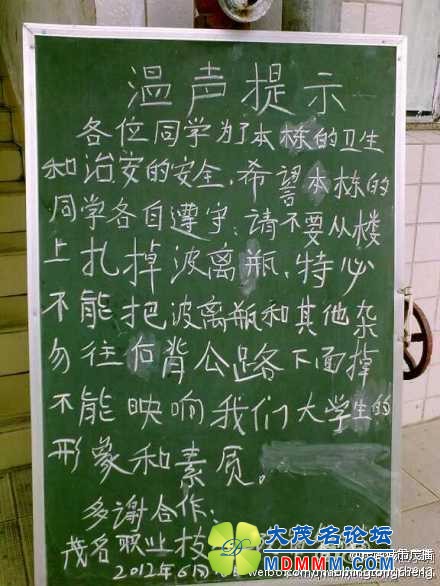 温声提示
各位同学为了本栋的卫生
和治安的安全，希誉本栋的
同学各自遵守：请不要从楼
上扎掉波离瓶，特必
不能把波离瓶和其他杂
勿往后背公路下面掉
不能映响我们大学生的
形象和素质。
多谢合作：
茂名职业技
2012年6月
大茂名论坛
MDMMM.COM